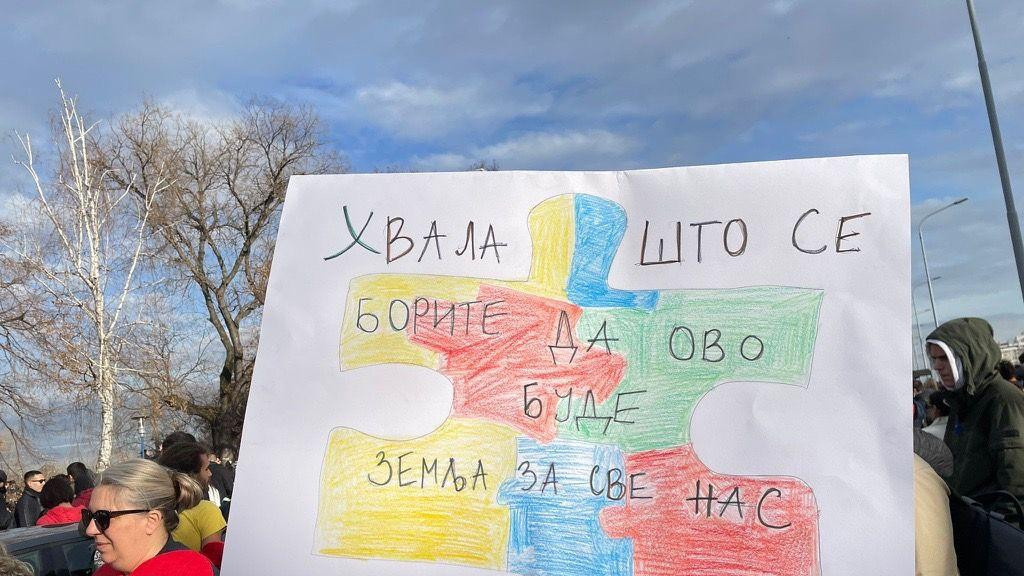 ХВАЛА ШТО СЕ
БОРИТЕ ДА ОВО
БУДЕ
ЗЕМЉА ЗА СВЕ НАС